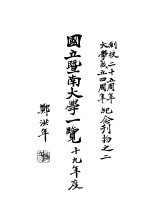 創校二十五周年
大學成立四周年
紀念刊物之二
國立暨南大學一覽
十九年度
鄭洪年